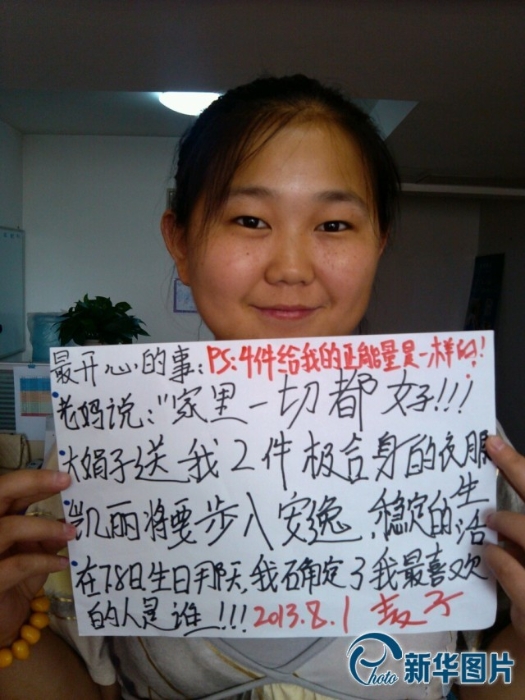 最开心的事：PS：4件给我的正能量是一样的！
老妈说："家里一切都好!!!
大娟子送我2件极合身的衣服
凯丽将要步入安逸、稳定的生活
在7.8日生日那天,我确定了我最喜欢
的人是谁!!! 2013.8.1
Photo 新华图片